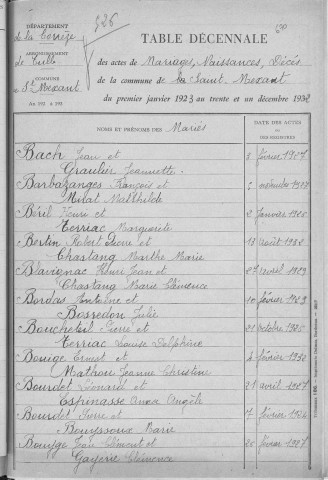 DÉPARTEMENT
de la Corrèze
ARRONDISSEMENT
de Tulle
COMMUNE
de St Mexant
An 192 à 193
526
TABLE DÉCENNALE
des actes de Mariages, Naissances, Décès
de la commune de Saint Mexant
du premier janvier 1923 au trente et un décembre 1932
NOMS ET PRÉNOMS DES Mariés
DATE DES ACTES
OU DES REGISTRES
Bach Jean et 8 février 1927
Graulier Jeannette
Barbazanges François et
Mirat Mathilde
Béril Henri et 2 janvier 1925
Terriac Marguerite
Bertin Robert Pierre et 18 août 1932
Chastang Marthe Marie
Blavignac Henri Jean et avril 1929
Chastang Marie Clémence
Bordas Antoine et 10 février 1923
Bosredon Julie
Boucheteil Pierre et 21 octobre 1925
Terriac Louise Delphine
Bouige Ernest et 4 février 1930
Mathou Jeanne Christine
Bourdet Léonard et 21 avril 1927
Espinasse Anna Angèle
Bourdet Pierre et 7 février 1924
Bouyssoux Marie
Bouyge Jean Clément et 25 février 1927
Clémence